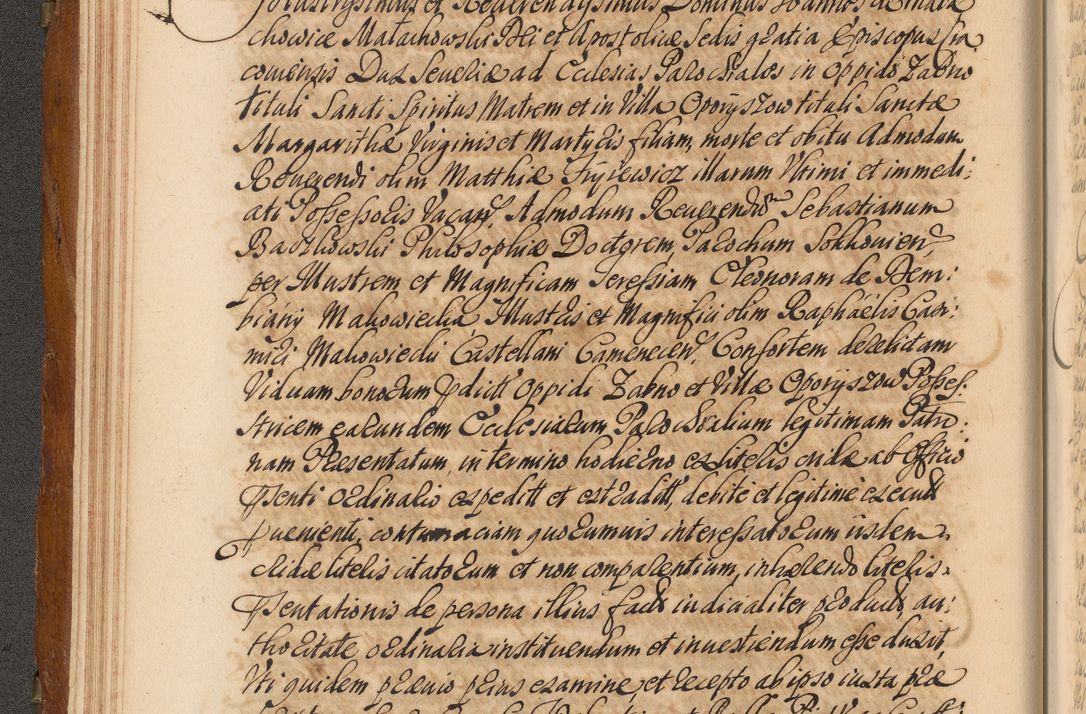 Illustrissimus et Reverendissimus Dominus Joannes de Mała
chowice Małachowski Dei et Apostolicæ Sedis gratia Episcopus Cra
coviensis Dux Severiæ ad Ecclesias Parochiales in Oppido Zabno
tituli Sancti Spiritus Matrem et in Villa Oporyszow tituli Sanctæ
Margarithæ Virginis et Martyris filiam, morte et obitu Admodum
Reverendi olim Matthiæ illarum Vltimi et immedi:
ati Possessoris Vacan. Admodum Reverendum Sebastianum
Baczkowski Philosophiæ Doctorem, Parochum
per Illustrem et Magnificam Teressiam Eleonoram de Dem:
biany Makowiecka Illustris et Magnifici olim Raphaelis Casi:
miri Makowiecki Castellani Camenecen. Consortem derelictam
Viduam bonorum pdictt Oppidi Zabno et Villæ Oporyszow Posses:
stricem earundem Ecclesiarum Parochialium legitimam Patro:
nam Præsentatum, in termino hodierno ex literis cridæ ab Officio
pſenti ordinario expeditt et extraditt, debite et legitime execut
pvenienti, contumaciam quorumvis interessatorum iisdem
cridæ literis citatorum et non comparentium, inhærendo literis
pſentationis de persona illius fact iudicialiter product, au:
thoritate ordinaria instituendum et investiendum esse duxit,
Vti quidem prævio prius examine, et recepto ab ipso iuxta præ